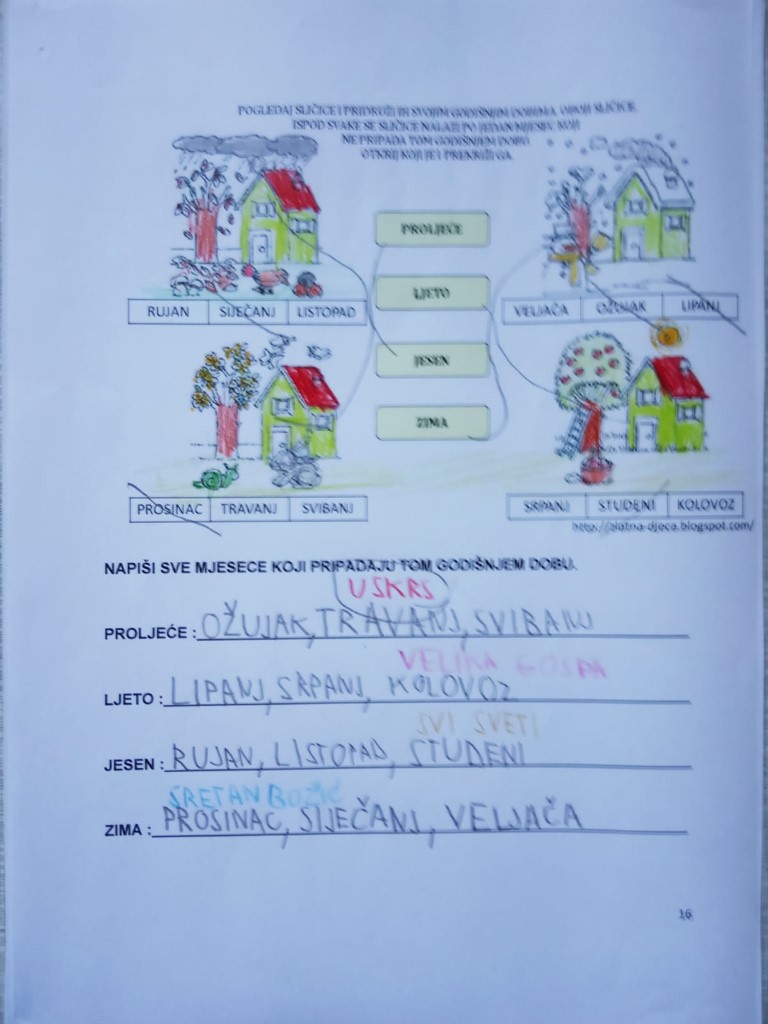 POGLEDAJ SLIČICE I PRIDRUŽI IH SVOJIM GODIŠNJIM DOBIMA. OBOJI SLIČICE.
ISPOD SVAKE SE SLIČICE NALAZI PO JEDAN MJESEC KOJI
NE PRIPADA TOM GODIŠNJEM DOBU.
OTKRIJ KOJI JE I PREKRIŽI GA.
PROLJEĆE
LJETO
JESEN
ZIMA
RUJAN SIJEČANJ LISTOPAD
VELJAČA OŽUJAK LIPANJ
PROSINAC TRAVANJ SVIBANJ
SRPANJ STUDENI KOLOVOZ
http://zlatna-djeca.blogspot.com/
NAPIŠI SVE MJESECE KOJI PRIPADAJU TOM GODIŠNJEM DOBU.
USKRS
PROLJEĆE : OŽUJAK, TRAVANJ, SVIBANJ
VELIKA GOSPA
LJETO : LIPANJ, SRPANJ, KOLOVOZ
SVI SVETI
JESEN : RUJAN, LISTOPAD, STUDENI
SRETAN BOŽIĆ
ZIMA : PROSINAC, SIJEČANJ, VELJAČA
16